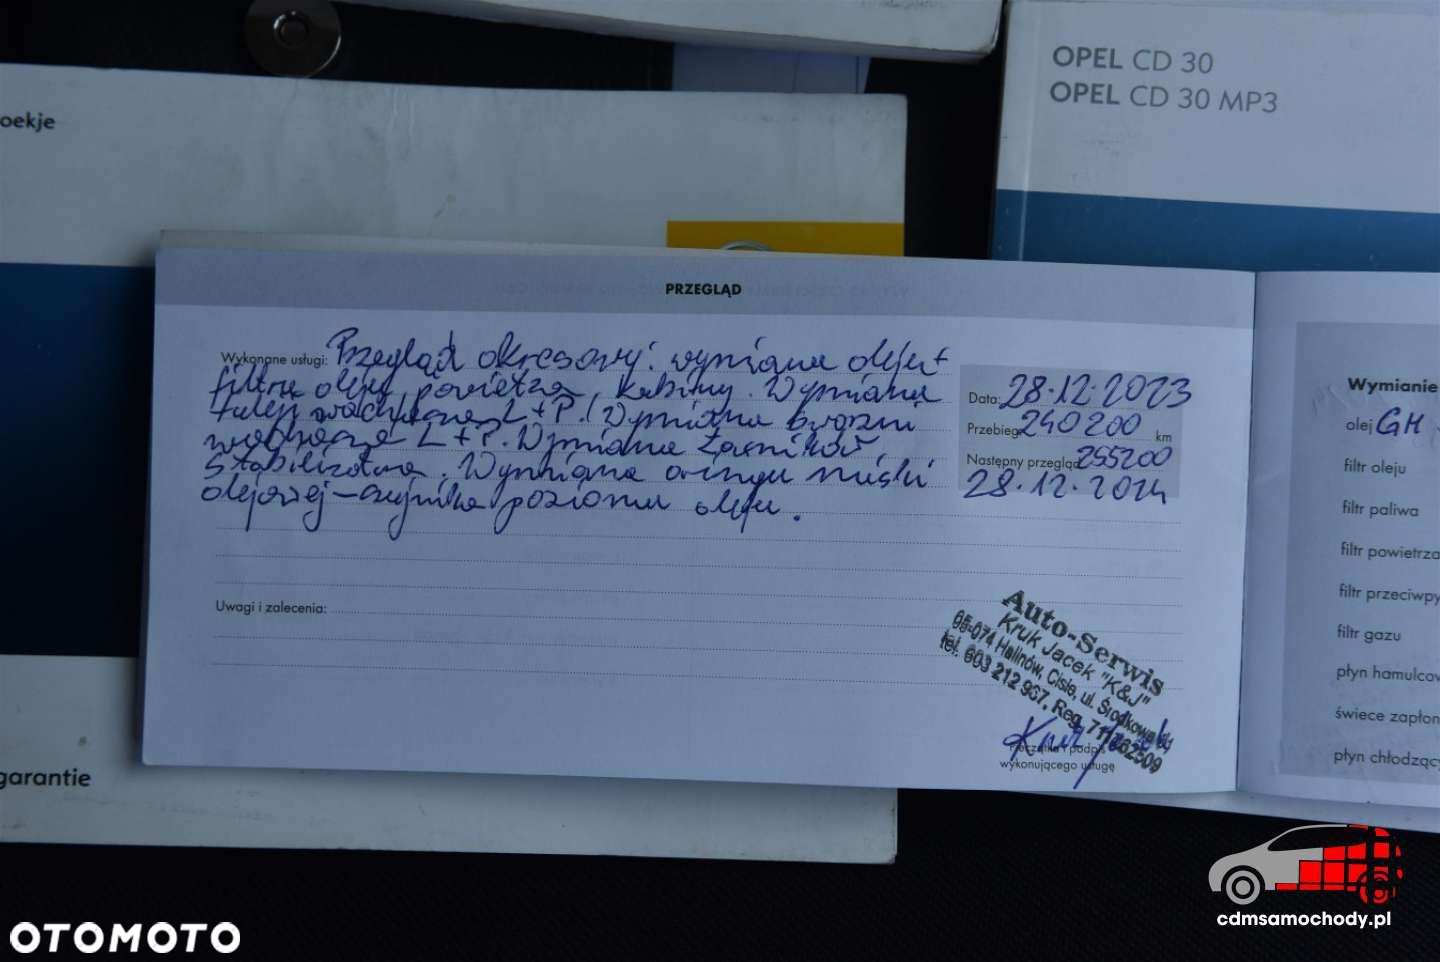 OPEL CD 30
OPEL CD 30 MP3
oekje
PRZEGLĄD
Wykonane usługi: Przegląd okresowy: wymiana oleju +
filtru oleju, powietrza, kabiny. Wymiana
tulej wachacza L+P. Wymiana sworzni
wachacza L+P. Wymiana łączników
stabilizatora. Wymiana oringu miski
olejowej - czujnika poziomu oleju.
Data: 28.12.2023
Przebieg 240200 km
Następny przegląd 255200
28.12.2024
Uwagi i zalecenia:
Auto-Serwis
Kruk Jacek "K&J"
05-074 Halinów, Cisie, ul. Środkowa
tel. 603 212 967, Reg.
Pieczątka i podpis
wykonującego usługę
Wymianie
olej GM
filtr oleju
filtr paliwa
filtr powietrza
filtr przeciwpy
filtr gazu
płyn hamulcow
świece zapłon
płyn chłodzący
garantie
OTOMOTO
cdmsamochody.pl